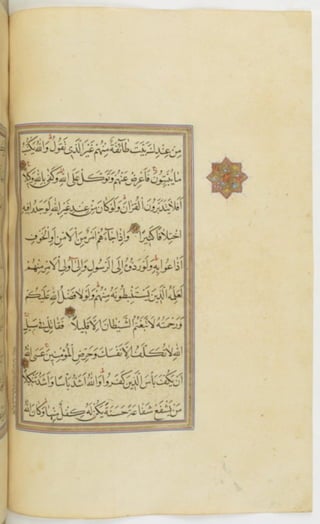 مِنْ عِنْدِكَ بَيَّتَ طَائِفَةٌ مِنْهُمْ غَيْرَ الَّذِي تَقُولُ وَاللَّهُ يَكْتُبُ
مَا يُبَيِّتُونَ فَأَعْرِضْ عَنْهُمْ وَتَوَكَّلْ عَلَى اللَّهِ وَكَفَى بِاللَّهِ وَكِيلًا
أَفَلَا يَتَدَبَّرُونَ الْقُرْآنَ وَلَوْ كَانَ مِنْ عِنْدِ غَيْرِ اللَّهِ لَوَجَدُوا فِيهِ
اخْتِلَافًا كَثِيرًا وَإِذَا جَاءَهُمْ أَمْرٌ مِنَ الْأَمْنِ أَوِ الْخَوْفِ
أَذَاعُوا بِهِ وَلَوْ رَدُّوهُ إِلَى الرَّسُولِ وَإِلَى أُولِي الْأَمْرِ مِنْهُمْ
لَعَلِمَهُ الَّذِينَ يَسْتَنْبِطُونَهُ مِنْهُمْ وَلَوْلَا فَضْلُ اللَّهِ عَلَيْكُمْ
وَرَحْمَتُهُ لَاتَّبَعْتُمُ الشَّيْطَانَ إِلَّا قَلِيلًا فَقَاتِلْ فِي سَبِيلِ
اللَّهِ لَا تُكَلَّفُ إِلَّا نَفْسَكَ وَحَرِّضِ الْمُؤْمِنِينَ عَسَى اللَّهُ
أَنْ يَكُفَّ بَأْسَ الَّذِينَ كَفَرُوا وَاللَّهُ أَشَدُّ بَأْسًا وَأَشَدُّ تَنْكِيلًا
مَنْ يَشْفَعْ شَفَاعَةً حَسَنَةً يَكُنْ لَهُ كِفْلٌ مِنْهَا وَكَانَ اللَّهُ